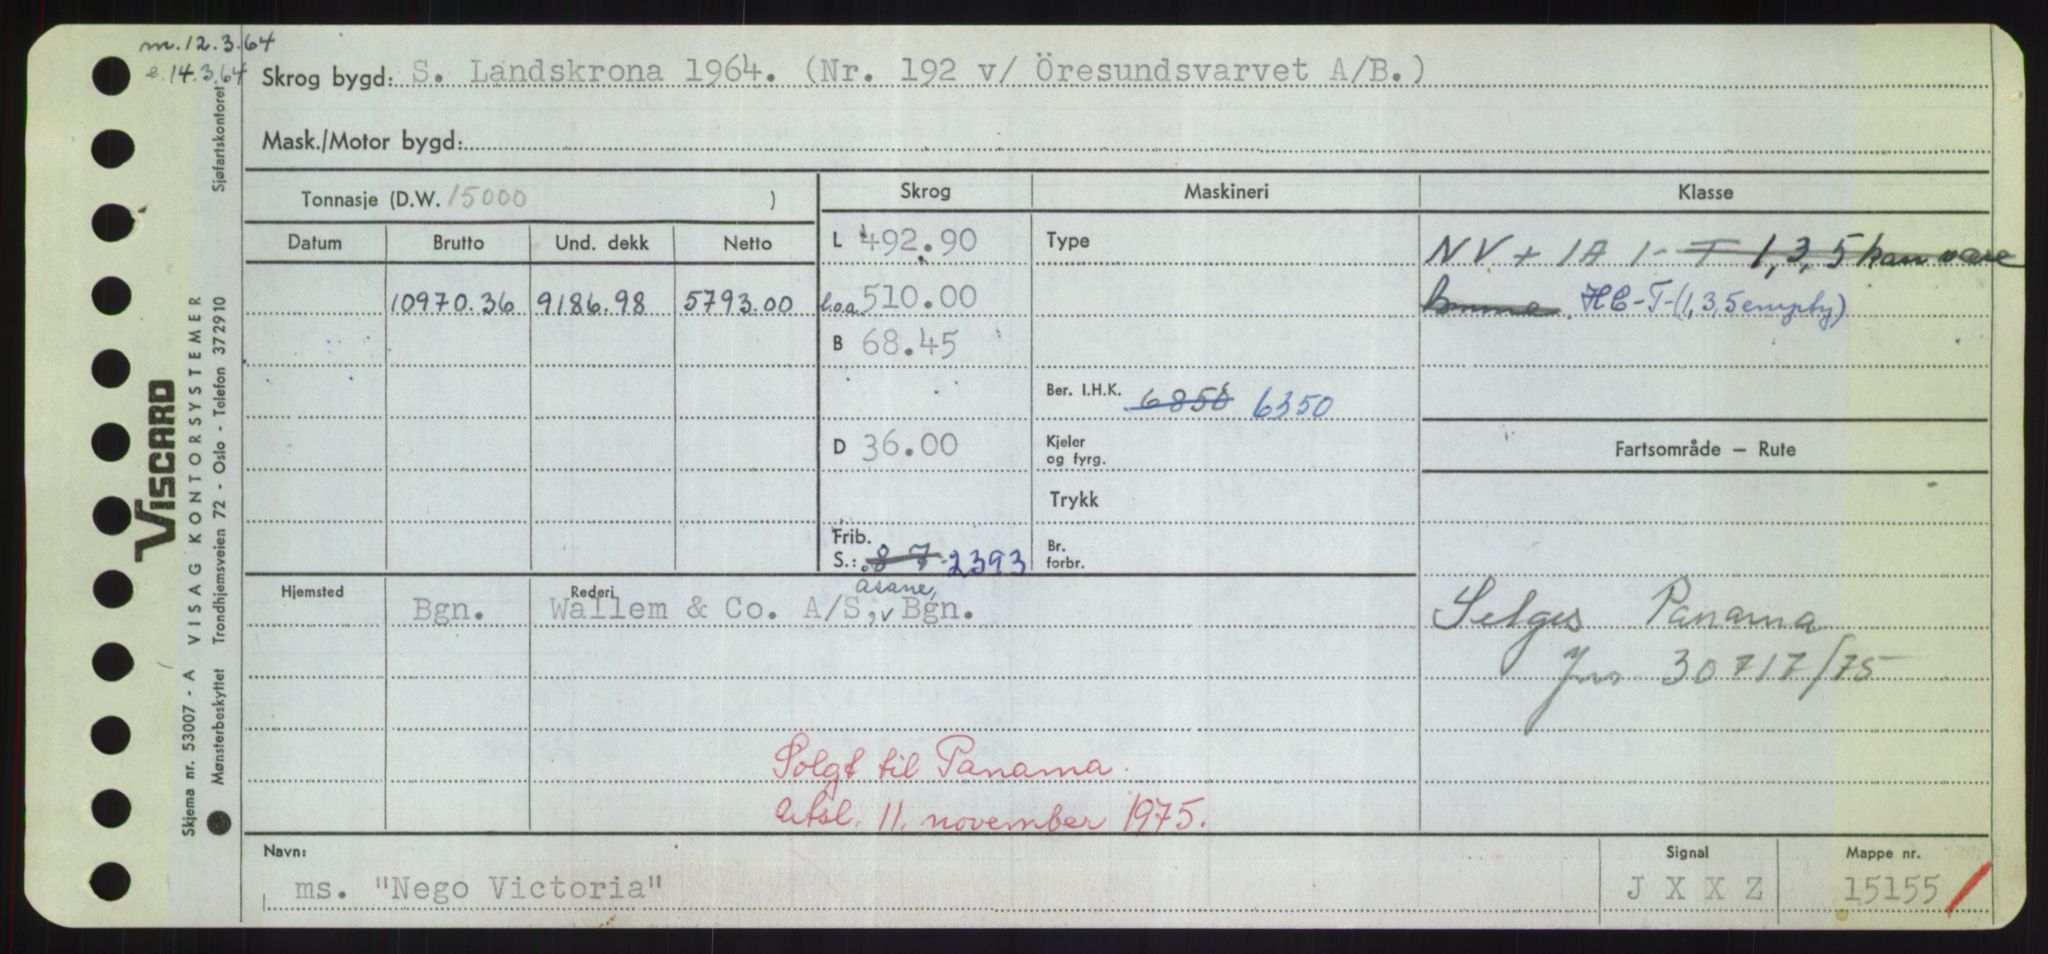 m.12.3.64
e.14.3.64
Skrog bygd: S. Landskrona 1964. (Nr. 192 v/ Öresundsvarvet A/B.)
Mask./Motor bygd:
Tonnasje (D.W. 15000 )
Skrog
Maskineri
Klasse
Datum
Brutto
Und. dekk
Netto
L 492.90
Type
NV + 1A 1- T 1,3,5 kan være
10970.36 9186.98 5793.00
l.o.a 510.00
tomme. HC-T-(1,3,5 empty)
B 68.45
Ber. I.H.K. 6850 6350
D 36.00
Kjeler
og fyrg.
Fartsområde — Rute
Trykk
Frib.
S.: 8 7 2393
Br.
forbr.
Hjemsted
Bgn.
Rederi
Åsane,
Wallem & Co. A/S, v Bgn.
Selges Panama
Jnr 30717/75
Solgt til Panama.
Utsl. 11. november 1975.
Navn:
ms. "Nego Victoria"
Signal
J X X Z
Mappe nr.
15155
VISCARD
Skjema nr. 53007 - A VISAG KONTORSYSTEMER
Mønsterbeskyttet Trondhjemsveien 72 - Oslo - Telefon 372910
Sjøfartskontoret